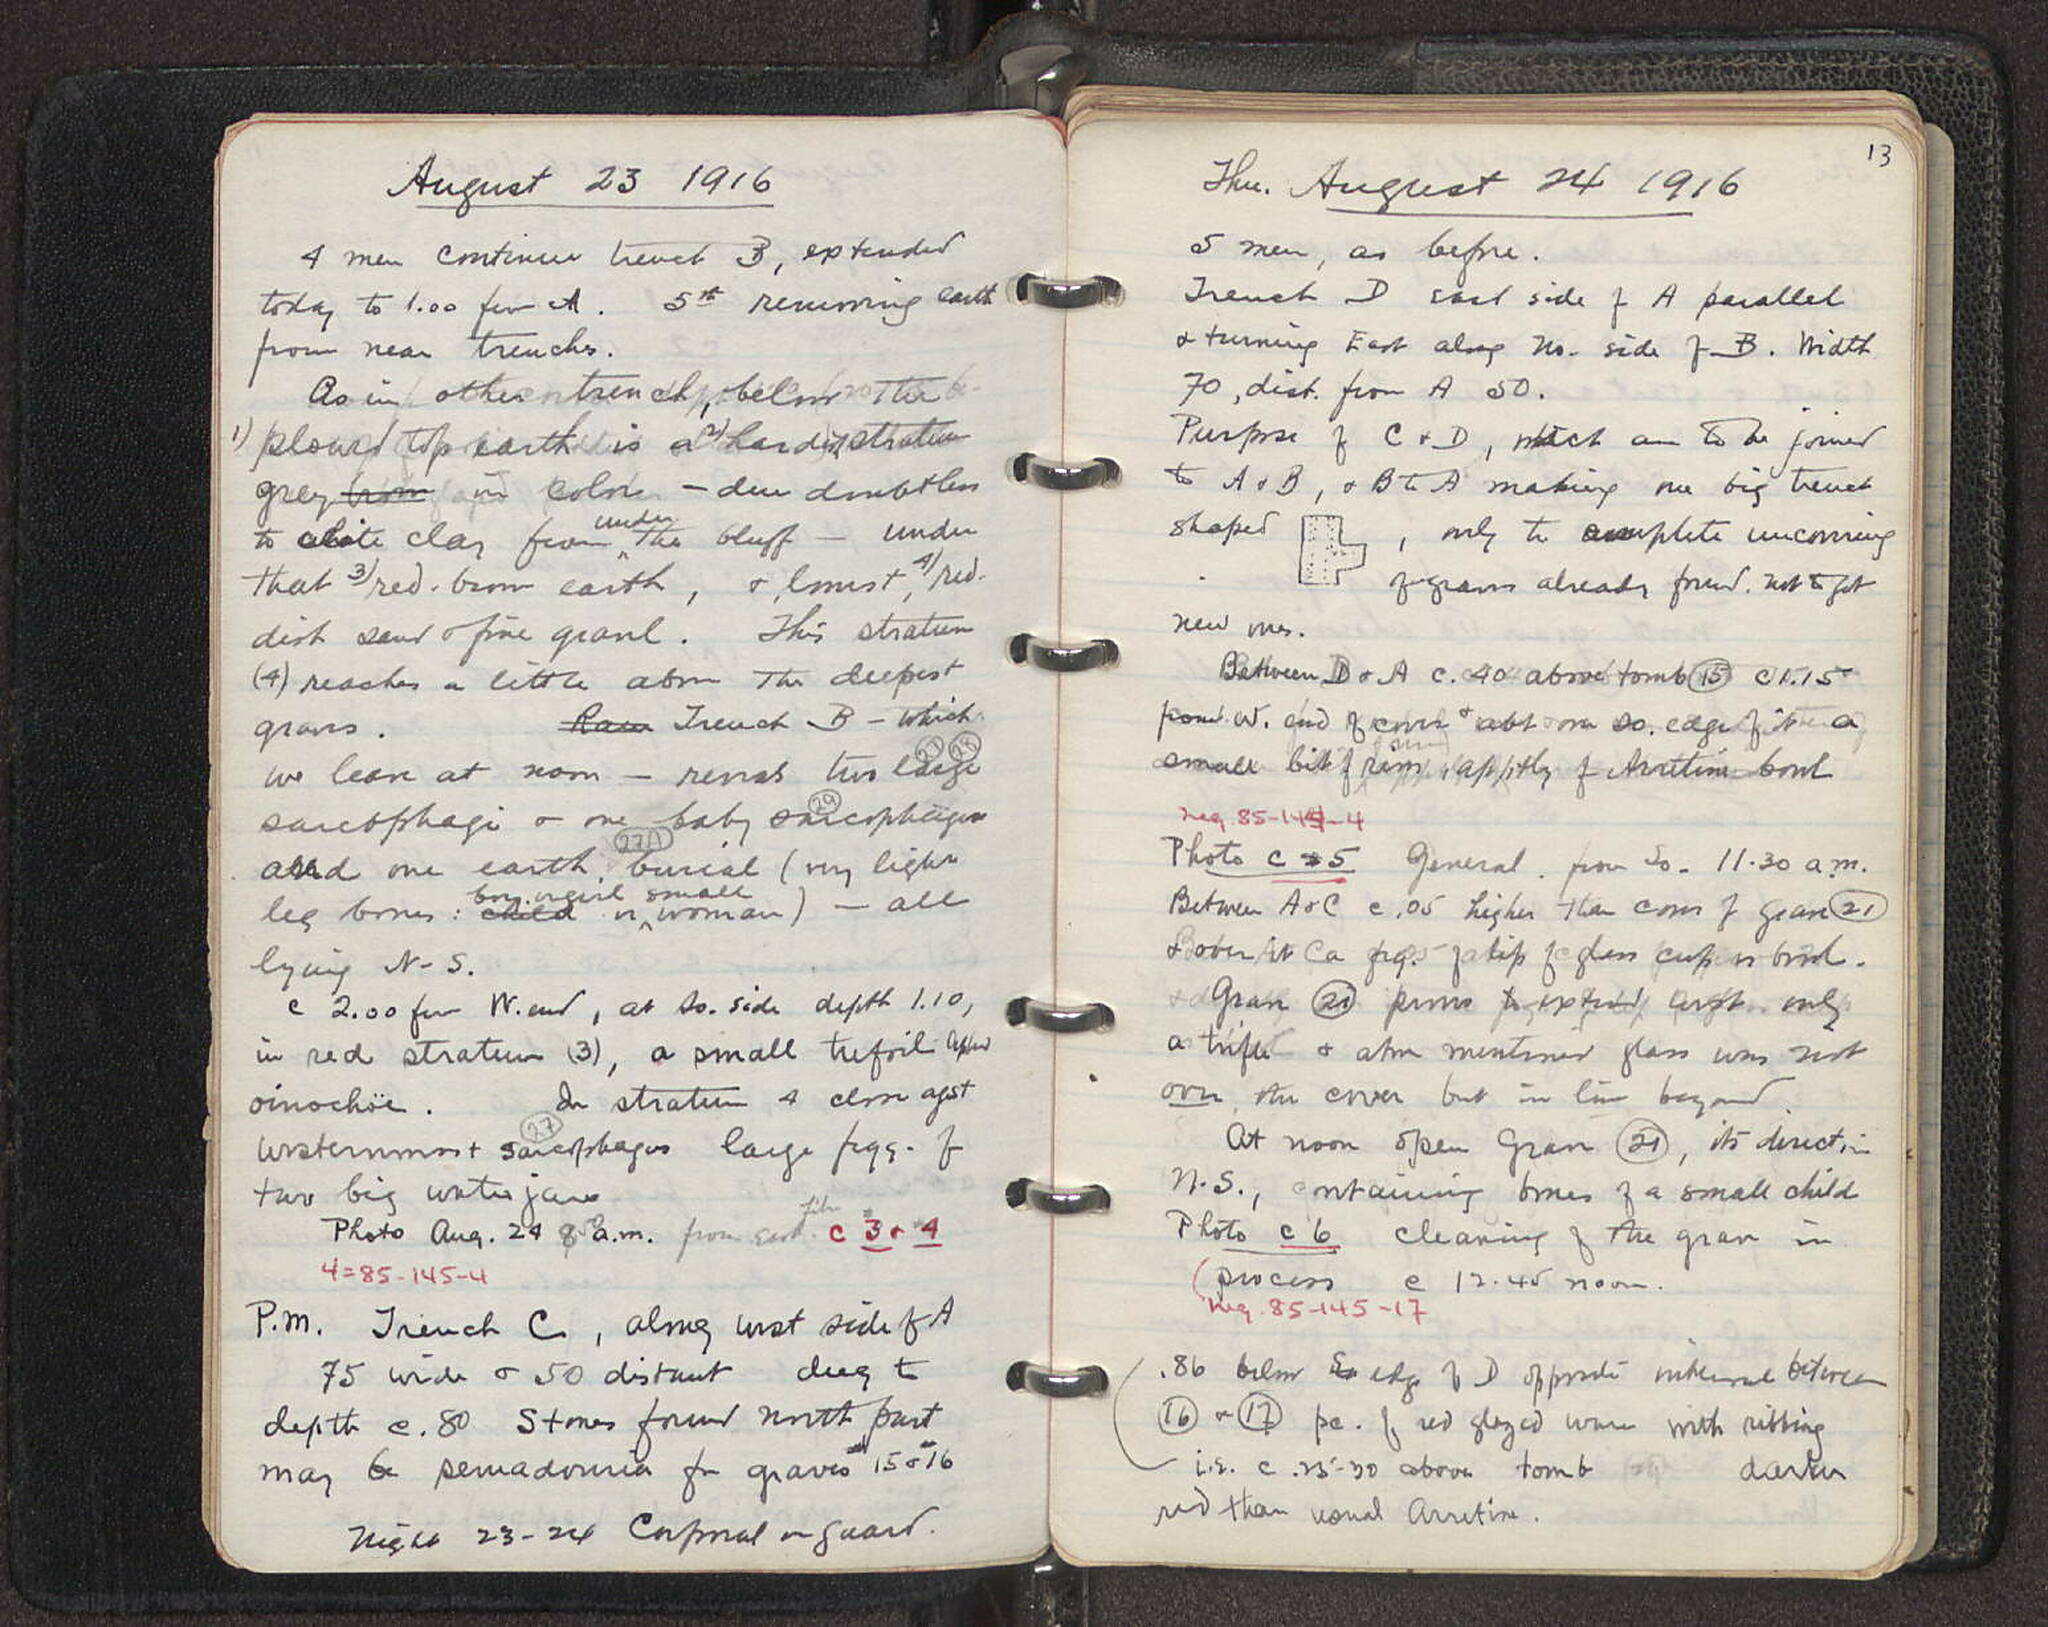 August 23 1916
4 men continue trench B, extended
today to 1.00 from A. 5th removing earth
from near trenches.
As in other trench, below the
1) plowed top earth is a 2) hard stratum
grey from in color - due doubtless
to white clay from under the bluff - under
that 3) red-brown earth, & lowest, 4) red-
dish sand & fine gravel. This stratum
(4) reaches a little above the deepest
graves. Trench B - which
we leave at noon - reveals two large 27 28
sarcophagi & one baby sarcophagus 29
and one earth burial (very light 27A
leg bones: child boy or girl or small woman) - all
lying N-S.
c 2.00 from W. end, at So. side depth 1.10,
in red stratum (3), a small trefoil lipped
oinochöe. In stratum 4 close agst
westernmost sarcophagus 27 large frgg. of
two big water jars
Photo Aug. 24 8 a.m. from east. film C 3 & 4
4=85-145-4
P.M. Trench C, along west side of A
75 wide & 50 distant deep to
depth c.80 Stones found north part
may be semadouria for graves 15 & 16
Night 23-24 Corporal on guard.
13
Thu. August 24 1916
5 men, as before.
Trench D east side of A parallel
& turning East along No. side of B. Width
70, dist. from A 50.
Purpose of C & D, which are to be joined
to A & B, & B to A making one big trench
shaped , only to complete uncovering
of graves already found. not to get
new ones.
Between D & A c.40 above tomb 15 c 1.15
from W. end of cover & abt on so. edge of it a
small bit of rim, app'tly of Arretine bowl
Neg 85-145-4
Photo C 5 General from So. 11.30 a.m.
Between A & C c.05 higher than cover of grave 21
& over it a frg. of a lip of glass cup or bowl.
Grave 21 proves to extend west only
a trifle & above mentioned glass was not
over the cover but in line beyond.
At noon open Grave 21, its direct'n
N.S., containing bones of a small child
Photo C 6 cleaning of the grave in
process c 12.45 noon.
Neg. 85-145-17
.86 below So edge of D opposite interval between
16 & 17 pc. of red glazed ware with ribbing
i.e. c .25-30 above tomb darker
red than usual Arretine.